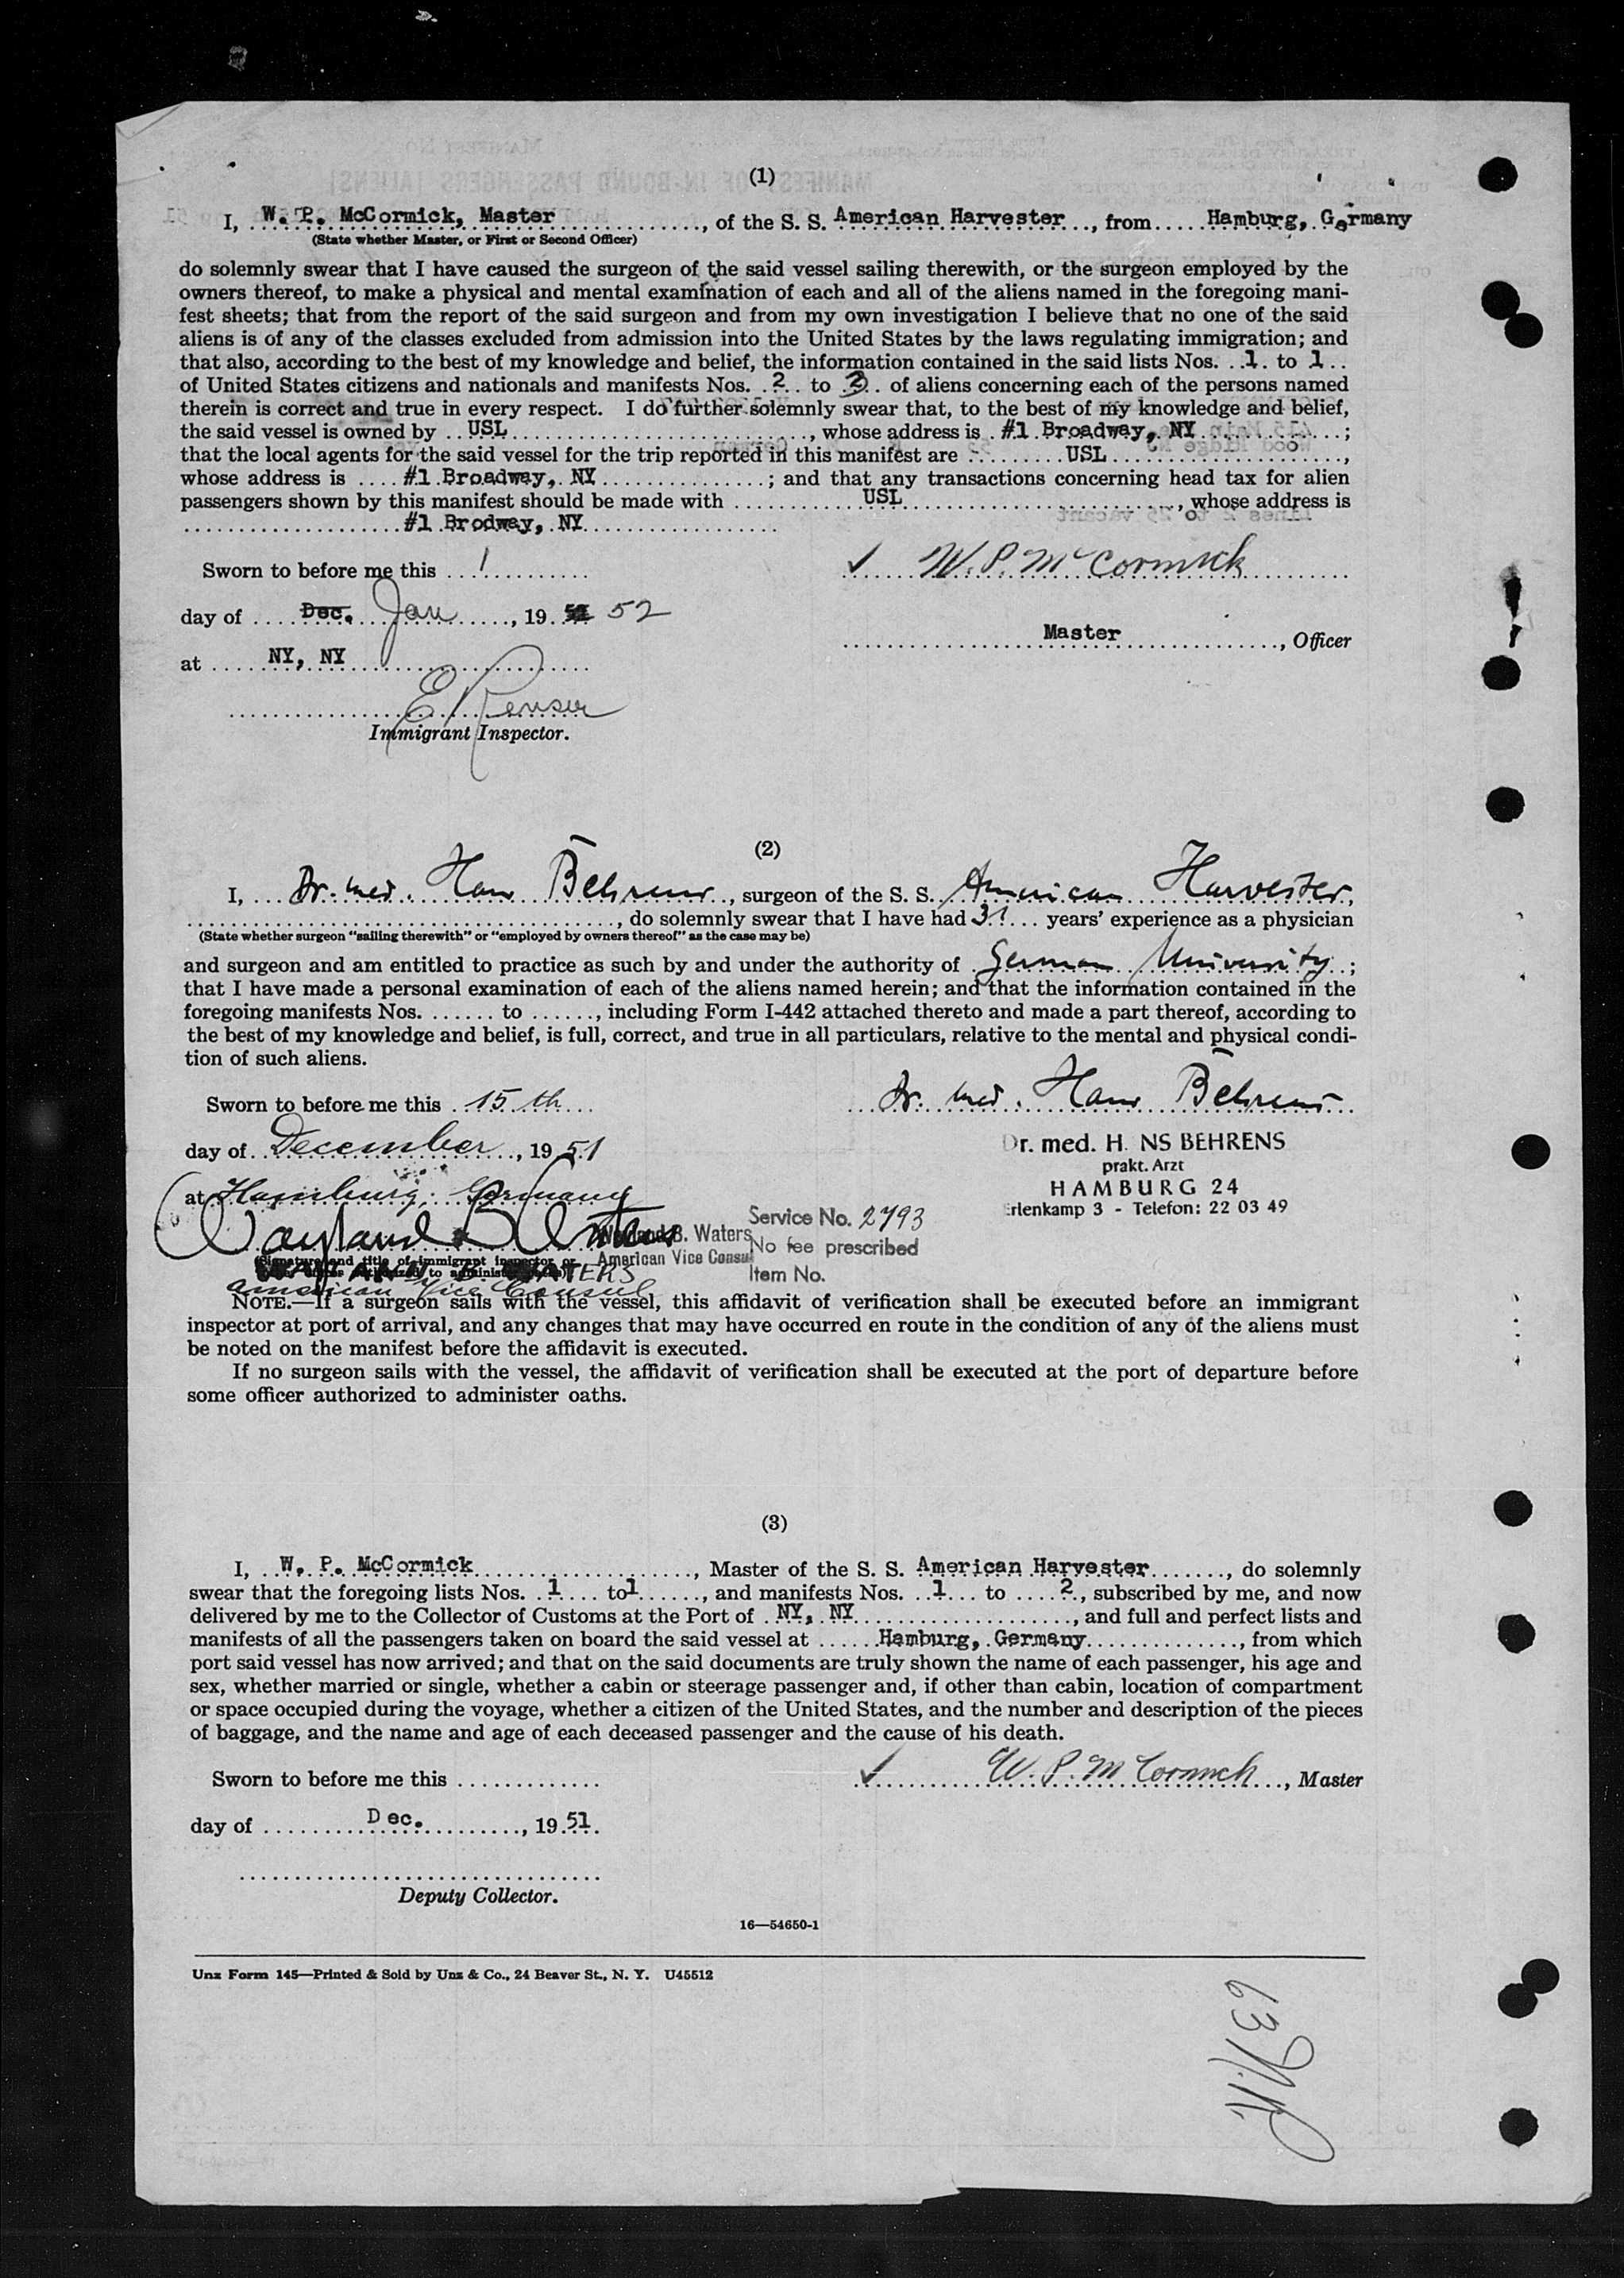 (1)
I, W. P. McCormick, Master, of the S. S. American Harvester, from Hamburg, Germany
(State whether Master, or First or Second Officer)
do solemnly swear that I have caused the surgeon of the said vessel sailing therewith, or the surgeon employed by the
owners thereof, to make a physical and mental examination of each and all of the aliens named in the foregoing mani-
fest sheets; that from the report of the said surgeon and from my own investigation I believe that no one of the said
aliens is of any of the classes excluded from admission into the United States by the laws regulating immigration; and
that also, according to the best of my knowledge and belief, the information contained in the said lists Nos. 1 to 1
of United States citizens and nationals and manifests Nos. 2 to of aliens concerning each of the persons named
therein is correct and true in every respect. I do further solemnly swear that, to the best of my knowledge and belief,
the said vessel is owned by USL, whose address is #1 Broadway, NY;
that the local agents for the said vessel for the trip reported in this manifest are USL,
whose address is #1 Broadway, NY; and that any transactions concerning head tax for alien
passengers shown by this manifest should be made with USL, whose address is
#1 Brodway, NY
Sworn to before me this 1
W. P. McCormick
day of Dec. Jan, 19 51 52
Master, Officer
at NY, NY
Immigrant Inspector.
(2)
I, Dr. med. Hans Behrens, surgeon of the S. S. American Harvester,
, do solemnly swear that I have had 31 years' experience as a physician
(State whether surgeon "sailing therewith" or "employed by owners thereof" as the case may be)
and surgeon and am entitled to practice as such by and under the authority of German University;
that I have made a personal examination of each of the aliens named herein; and that the information contained in the
foregoing manifests Nos. ...... to ......, including Form I-442 attached thereto and made a part thereof, according to
the best of my knowledge and belief, is full, correct, and true in all particulars, relative to the mental and physical condi-
tion of such aliens.
Sworn to before me this 15th
Dr. med. Hans Behrens
day of December, 1951
Dr. med. H NS BEHRENS
prakt. Arzt
HAMBURG 24
rlenkamp 3 - Telefon: 22 03 49
at Hamburg, Germany
Wayland B Waters
Wayland B. Waters
American Vice Consul
Service No. 2793
No fee prescribed
Item No.
(Signature and title of immigrant inspector or
American Vice Consul
NOTE.—If a surgeon sails with the vessel, this affidavit of verification shall be executed before an immigrant
inspector at port of arrival, and any changes that may have occurred en route in the condition of any of the aliens must
be noted on the manifest before the affidavit is executed.
If no surgeon sails with the vessel, the affidavit of verification shall be executed at the port of departure before
some officer authorized to administer oaths.
(3)
I, W. P. McCormick, Master of the S. S. American Harvester, do solemnly
swear that the foregoing lists Nos. 1 to 1, and manifests Nos. 1 to 2, subscribed by me, and now
delivered by me to the Collector of Customs at the Port of NY, NY, and full and perfect lists and
manifests of all the passengers taken on board the said vessel at Hamburg, Germany, from which
port said vessel has now arrived; and that on the said documents are truly shown the name of each passenger, his age and
sex, whether married or single, whether a cabin or steerage passenger and, if other than cabin, location of compartment
or space occupied during the voyage, whether a citizen of the United States, and the number and description of the pieces
of baggage, and the name and age of each deceased passenger and the cause of his death.
Sworn to before me this
W. P. McCormick, Master
day of Dec., 19 51.
Deputy Collector.
16—54650-1
Unz Form 145—Printed & Sold by Unz & Co., 24 Beaver St., N. Y. U45512